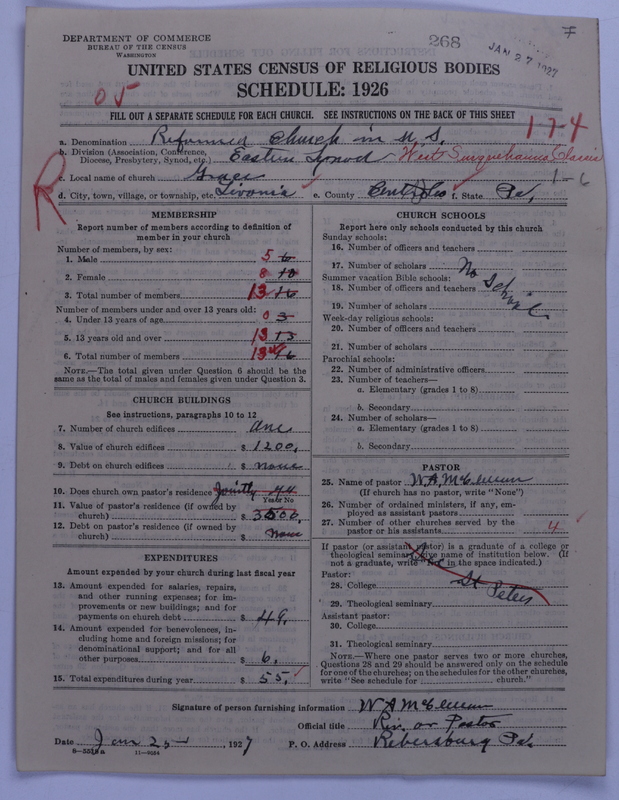 DEPARTMENT OF COMMERCE
BUREAU OF THE CENSUS
WASHINGTON
268
JAN 27 1927
UNITED STATES CENSUS OF RELIGIOUS BODIES
SCHEDULE: 1926
05
FILL OUT A SEPARATE SCHEDULE FOR EACH CHURCH. SEE INSTRUCTIONS ON THE BACK OF THIS SHEET
17-4
a. Denomination Reformed Church in U.S.
b. Division (Association, Conference, Diocese, Presbytery, Synod, etc.) Eastern Synod - West Susquehanna Classis
1-6
c. Local name of church Grace
d. City, town, village, or township, etc. Livonia e. County Centre f. State Pa.
R
MEMBERSHIP
Report number of members according to definition of
member in your church
Number of members, by sex:
1. Male 5 6
2. Female 8 10
3. Total number of members 13 16
Number of members under and over 13 years old:
4. Under 13 years of age 0 3
5. 13 years old and over 13 13
6. Total number of members 13 16
NOTE.—The total given under Question 6 should be the
same as the total of males and females given under Question 3.
CHURCH BUILDINGS
See instructions, paragraphs 10 to 12
7. Number of church edifices One
8. Value of church edifices $ 1200.
9. Debt on church edifices $ none
10. Does church own pastor's residence Jointly
Yes or No
11. Value of pastor's residence (if owned by
church) $ 3500.
12. Debt on pastor's residence (if owned by
church) $ None
EXPENDITURES
Amount expended by your church during last fiscal year
13. Amount expended for salaries, repairs,
and other running expenses; for im-
provements or new buildings; and for
payments on church debt $ 49.
14. Amount expended for benevolences, in-
cluding home and foreign missions; for
denominational support; and for all
other purposes $ 6.
15. Total expenditures during year $ 55.
CHURCH SCHOOLS
Report here only schools conducted by this church
Sunday schools:
16. Number of officers and teachers
17. Number of scholars No School
Summer vacation Bible schools:
18. Number of officers and teachers
19. Number of scholars
Week-day religious schools:
20. Number of officers and teachers
21. Number of scholars
Parochial schools:
22. Number of administrative officers
23. Number of teachers—
a. Elementary (grades 1 to 8)
b. Secondary
24. Number of scholars—
a. Elementary (grades 1 to 8)
b. Secondary
PASTOR
25. Name of pastor
(If church has no pastor, write "None")
26. Number of ordained ministers, if any, em-
ployed as assistant pastors
27. Number of other churches served by the
pastor or his assistants 4
If pastor (or assistant pastor) is a graduate of a college or
theological seminary, give name of institution below. (If
not a graduate, write "No" in the space indicated.)
Pastor:
28. College St Peters
29. Theological seminary
Assistant pastor:
30. College
31. Theological seminary
NOTE.—Where one pastor serves two or more churches,
Questions 28 and 29 should be answered only on the schedule
for one of the churches; on the schedules for the other churches,
write "See schedule for church."
Signature of person furnishing information
Official title Rev. or Pastor
Date Jan 25 , 1927 P. O. Address Rebersburg Pa.
8-5518a 11-9054